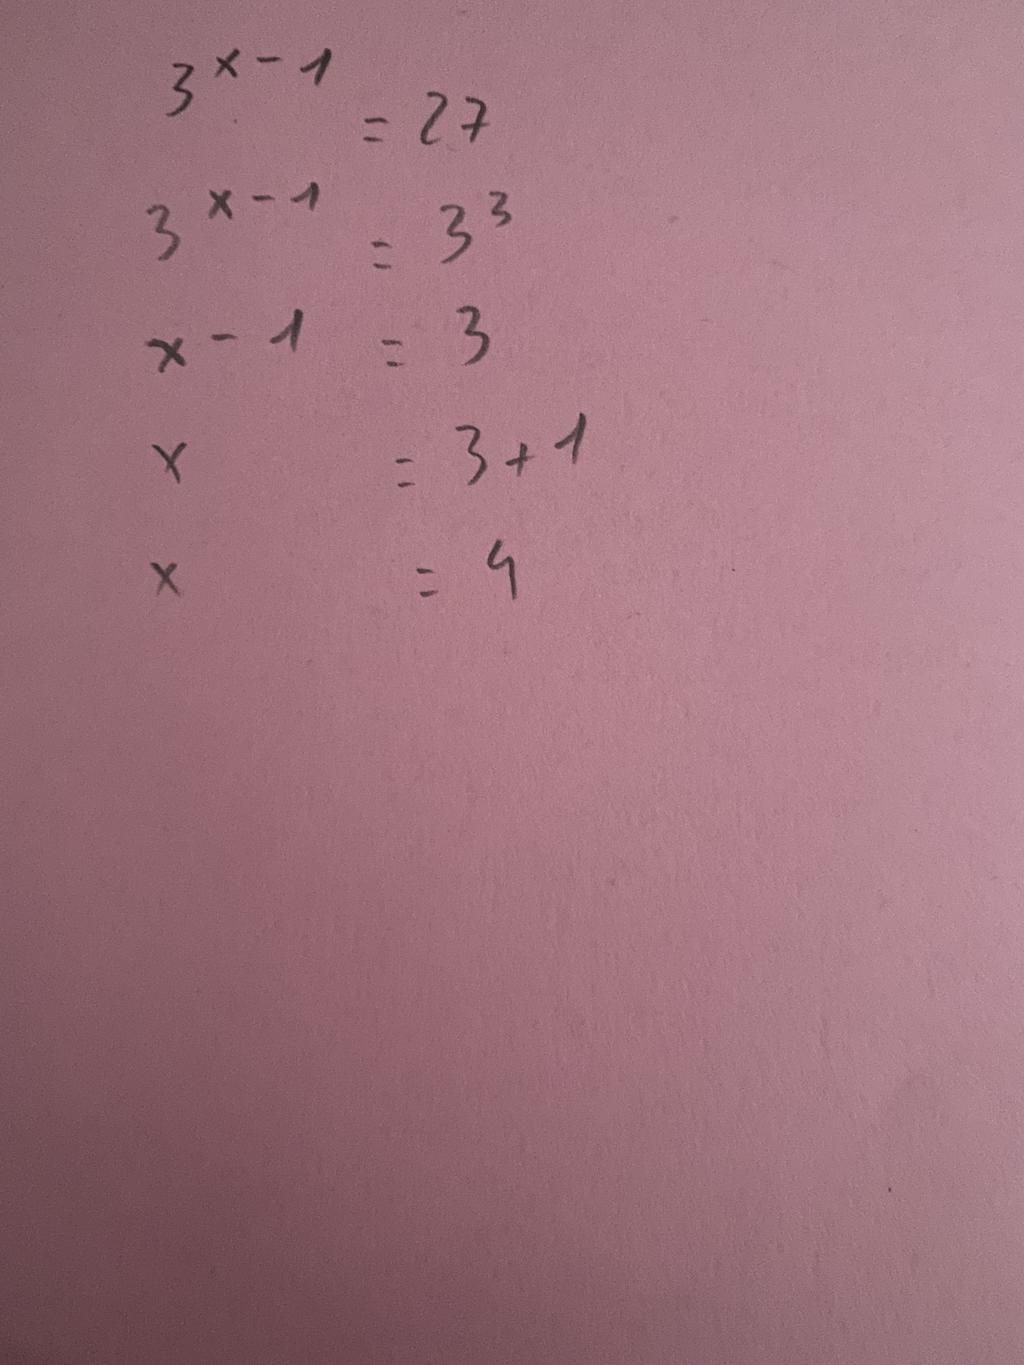 3^{x-1} = 27
3^{x-1} = 3^3
x - 1 = 3
x = 3 + 1
x = 4